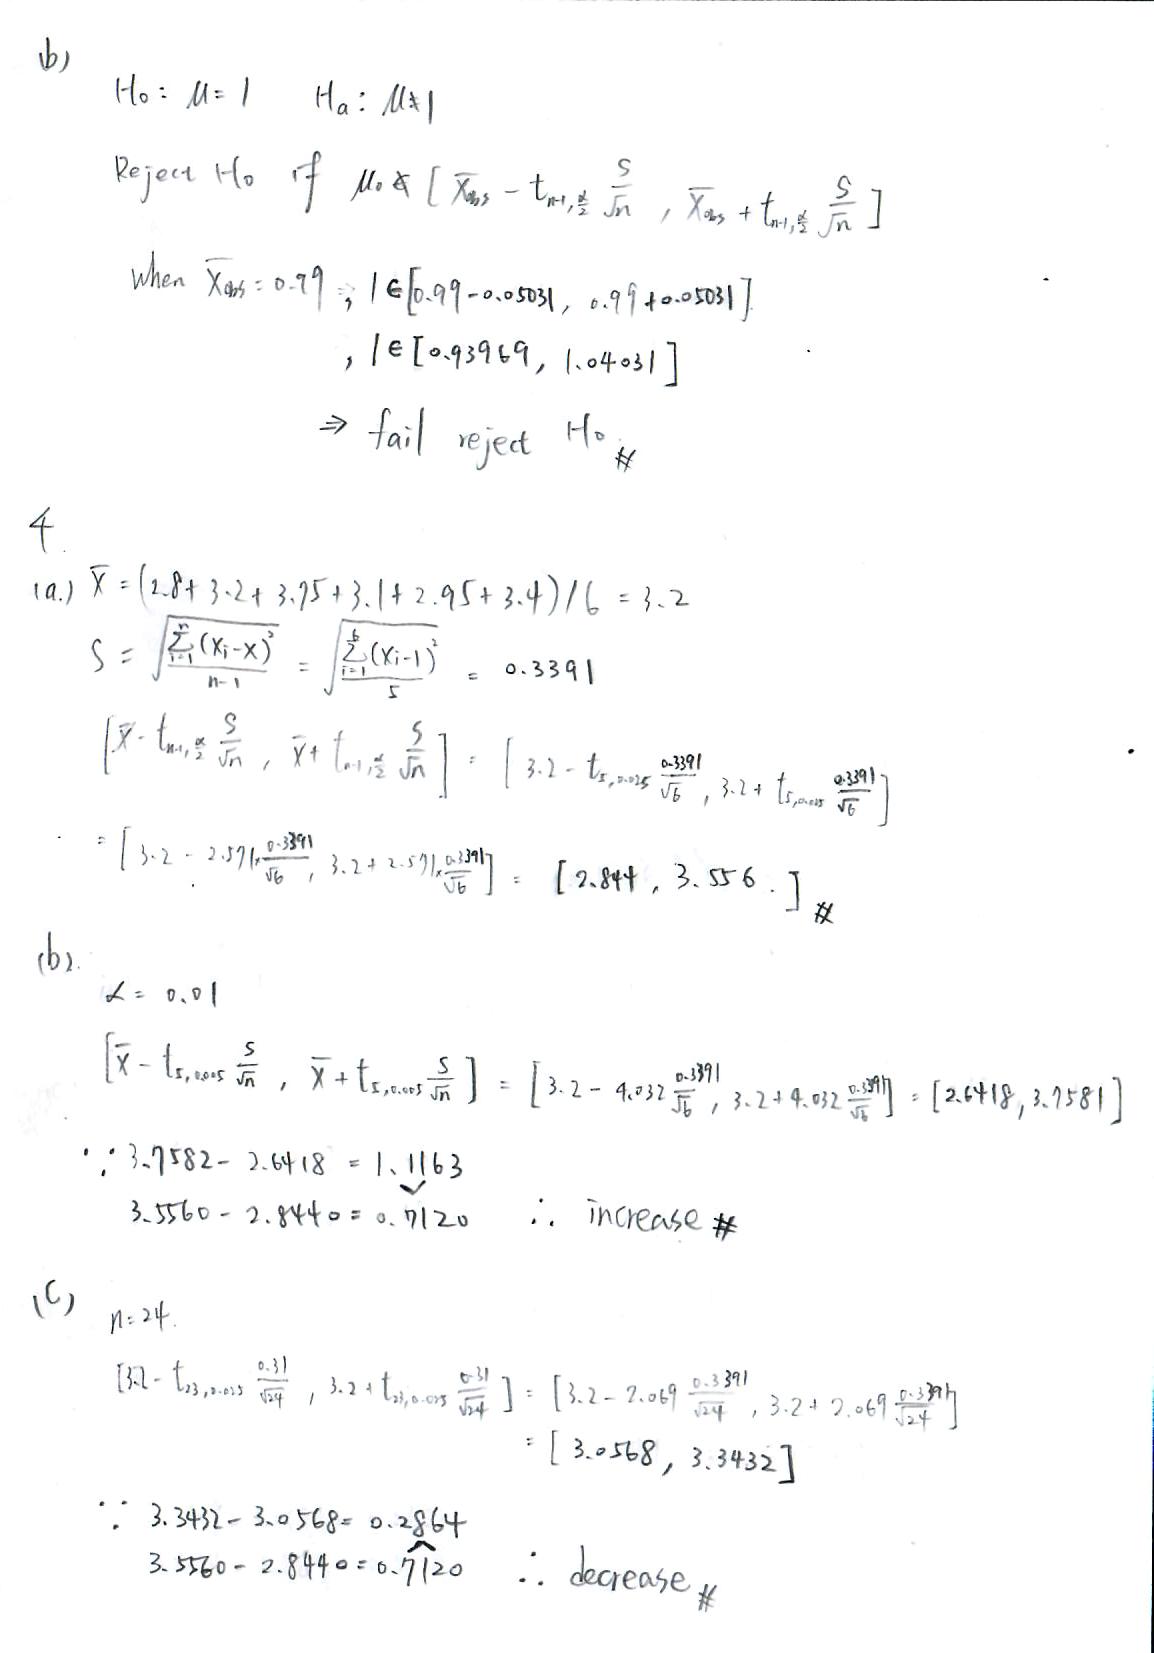 (b)
H₀: μ=1   Hₐ: μ≠1
Reject H₀ if μ₀ ∉ [X̄obs - t_{n-1,α/2} S/√n , X̄obs + t_{n-1,α/2} S/√n]
When X̄obs = 0.99 , 1∈[0.99-0.05031, 0.99+0.05031]
, 1∈[0.93969, 1.04031]
⇒ fail reject H₀ #
4.
(a.) X̄ = (2.8+3.2+3.75+3.1+2.95+3.4)/6 = 3.2
S = √(∑_{i=1}^{n}(Xi-X)²/(n-1)) = √(∑_{i=1}^{6}(Xi-1)²/5) = 0.3391
[X̄ - t_{n-1,α/2} S/√n , X̄ + t_{n-1,α/2} S/√n] = [3.2 - t_{5,0.025} 0.3391/√6 , 3.2 + t_{5,0.025} 0.3391/√6]
= [3.2 - 2.571×0.3391/√6 , 3.2 + 2.571×0.3391/√6] = [2.844 , 3.556.] #
(b).
α = 0.01
[X̄ - t_{5,0.005} S/√n , X̄ + t_{5,0.005} S/√n] = [3.2 - 4.032 0.3391/√6 , 3.2 + 4.032 0.3391/√6] = [2.6418, 3.7581]
∵ 3.7582 - 2.6418 = 1.1163
3.5560 - 2.8440 = 0.7120   ∴ increase #
(C)
n=24.
[3.2 - t_{23,0.025} 0.31/√24 , 3.2 + t_{23,0.025} 0.31/√24] = [3.2 - 2.069 0.3391/√24 , 3.2 + 2.069 0.3391/√24]
= [3.0568, 3.3432]
∵ 3.3432 - 3.0568 = 0.2864
3.5560 - 2.8440 = 0.7120   ∴ decrease #